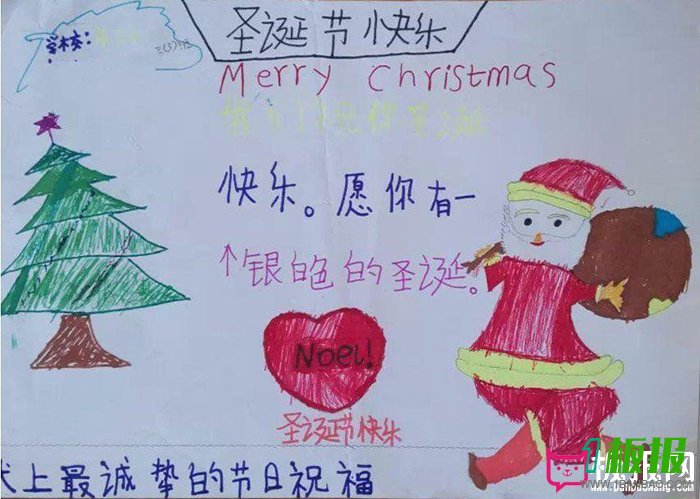 圣诞节快乐
学校:
Merry Christmas
快乐。愿你有一
个银白色的圣诞。
Noel!
圣诞节快乐
上最诚挚的节日祝福
板报网